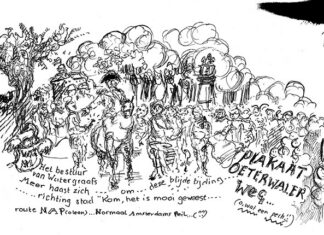 PLAKAAT
OETERWALER
WEG...
Het bestuur
van Watergraafs
Meer haast zich ..... om ... deze blijde tijding...
...... richting stad "Kom, het is mooi geweest.....
route N/A P(roleen)... Normaal Amsterdams Peil...